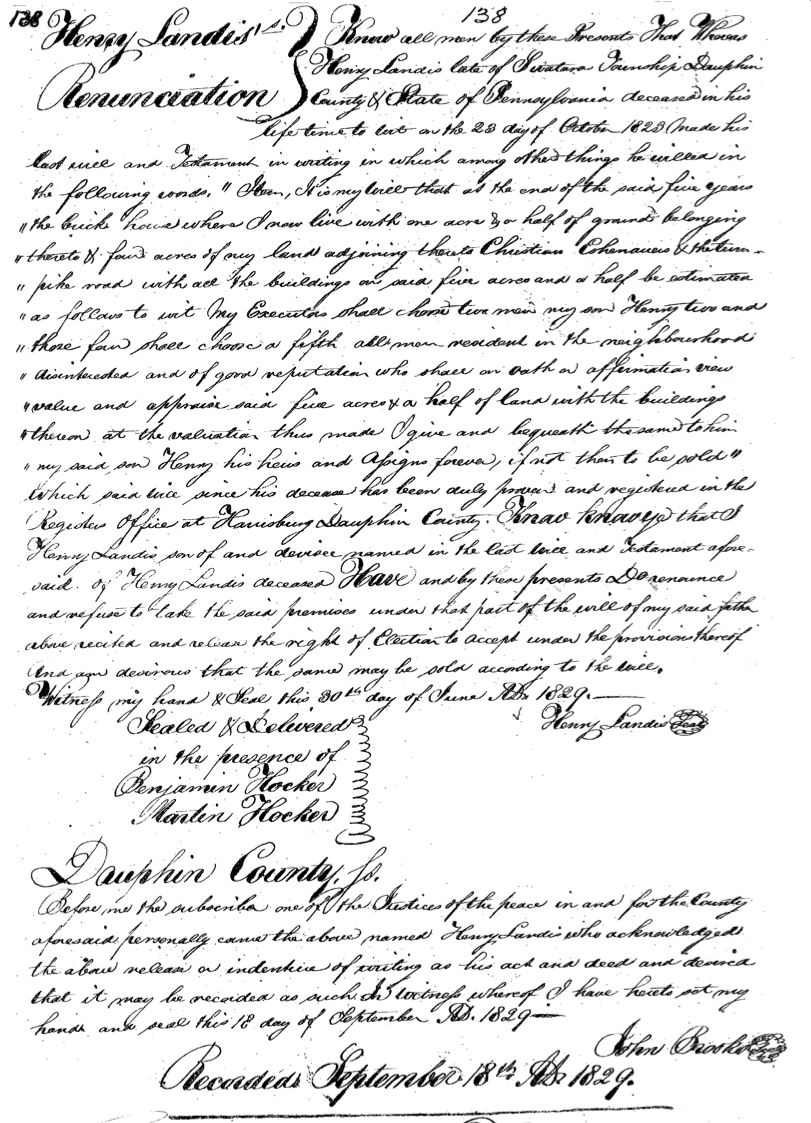 138 138
Henry Landis's. Know all men by these Presents That Whereas
Henry Landis late of Swatara Township Dauphin
Renunciation County & State of Pennsylvania deceased in his
life time to wit on the 23 day of October 1823 Made his
last will and Testament in writing in which among other things he willed in
the following words. " Item, It is my will that at the end of the said five years
" the brick house where I now live with one acre & a half of ground belonging
" thereto & four acres of my land adjoining thereto Christian & the turn-
" pike road with all the buildings on said five acres and a half be estimated
" as follows to wit My Executors shall choose two men my son Henry two and
" those four shall choose a fifth all men resident in the neighbourhood
" disinterested and of good reputation who shall on oath or affirmation view
" value and appraise said five acres & a half of land with the buildings
" thereon at the valuation thus made I give and bequeath the same to him
" my said son Henry his heirs and Assigns forever, if not then to be sold "
Which said will since his decease has been duly proven and registered in the
Registers Office at Harrisburg Dauphin County. Know know ye that I
Henry Landis son of and devisee named in the last will and Testament afore-
said of Henry Landis deceased Have and by these presents Do renounce
and refuse to take the said premises under that part of the will of my said father
above recited and release the right of Election to accept under the provisions thereof
And am desirous that the same may be sold according to the will.
Witness my hand & Seal this 30th day of June AD. 1829.
Sealed & Delivered Henry Landis Seal
in the presence of
Benjamin Hocker
Martin Hocker
Dauphin County, Ss.
Before me the subscriber one of the Justices of the peace in and for the County
aforesaid personally came the above named Henry Landis who acknowledged
the above release or indenture of writing as his act and deed and desired
that it may be recorded as such. In witness whereof I have hereto set my
hand and seal this 18 day of September AD. 1829
John Brooks Seal
Recorded September 18th AD. 1829.